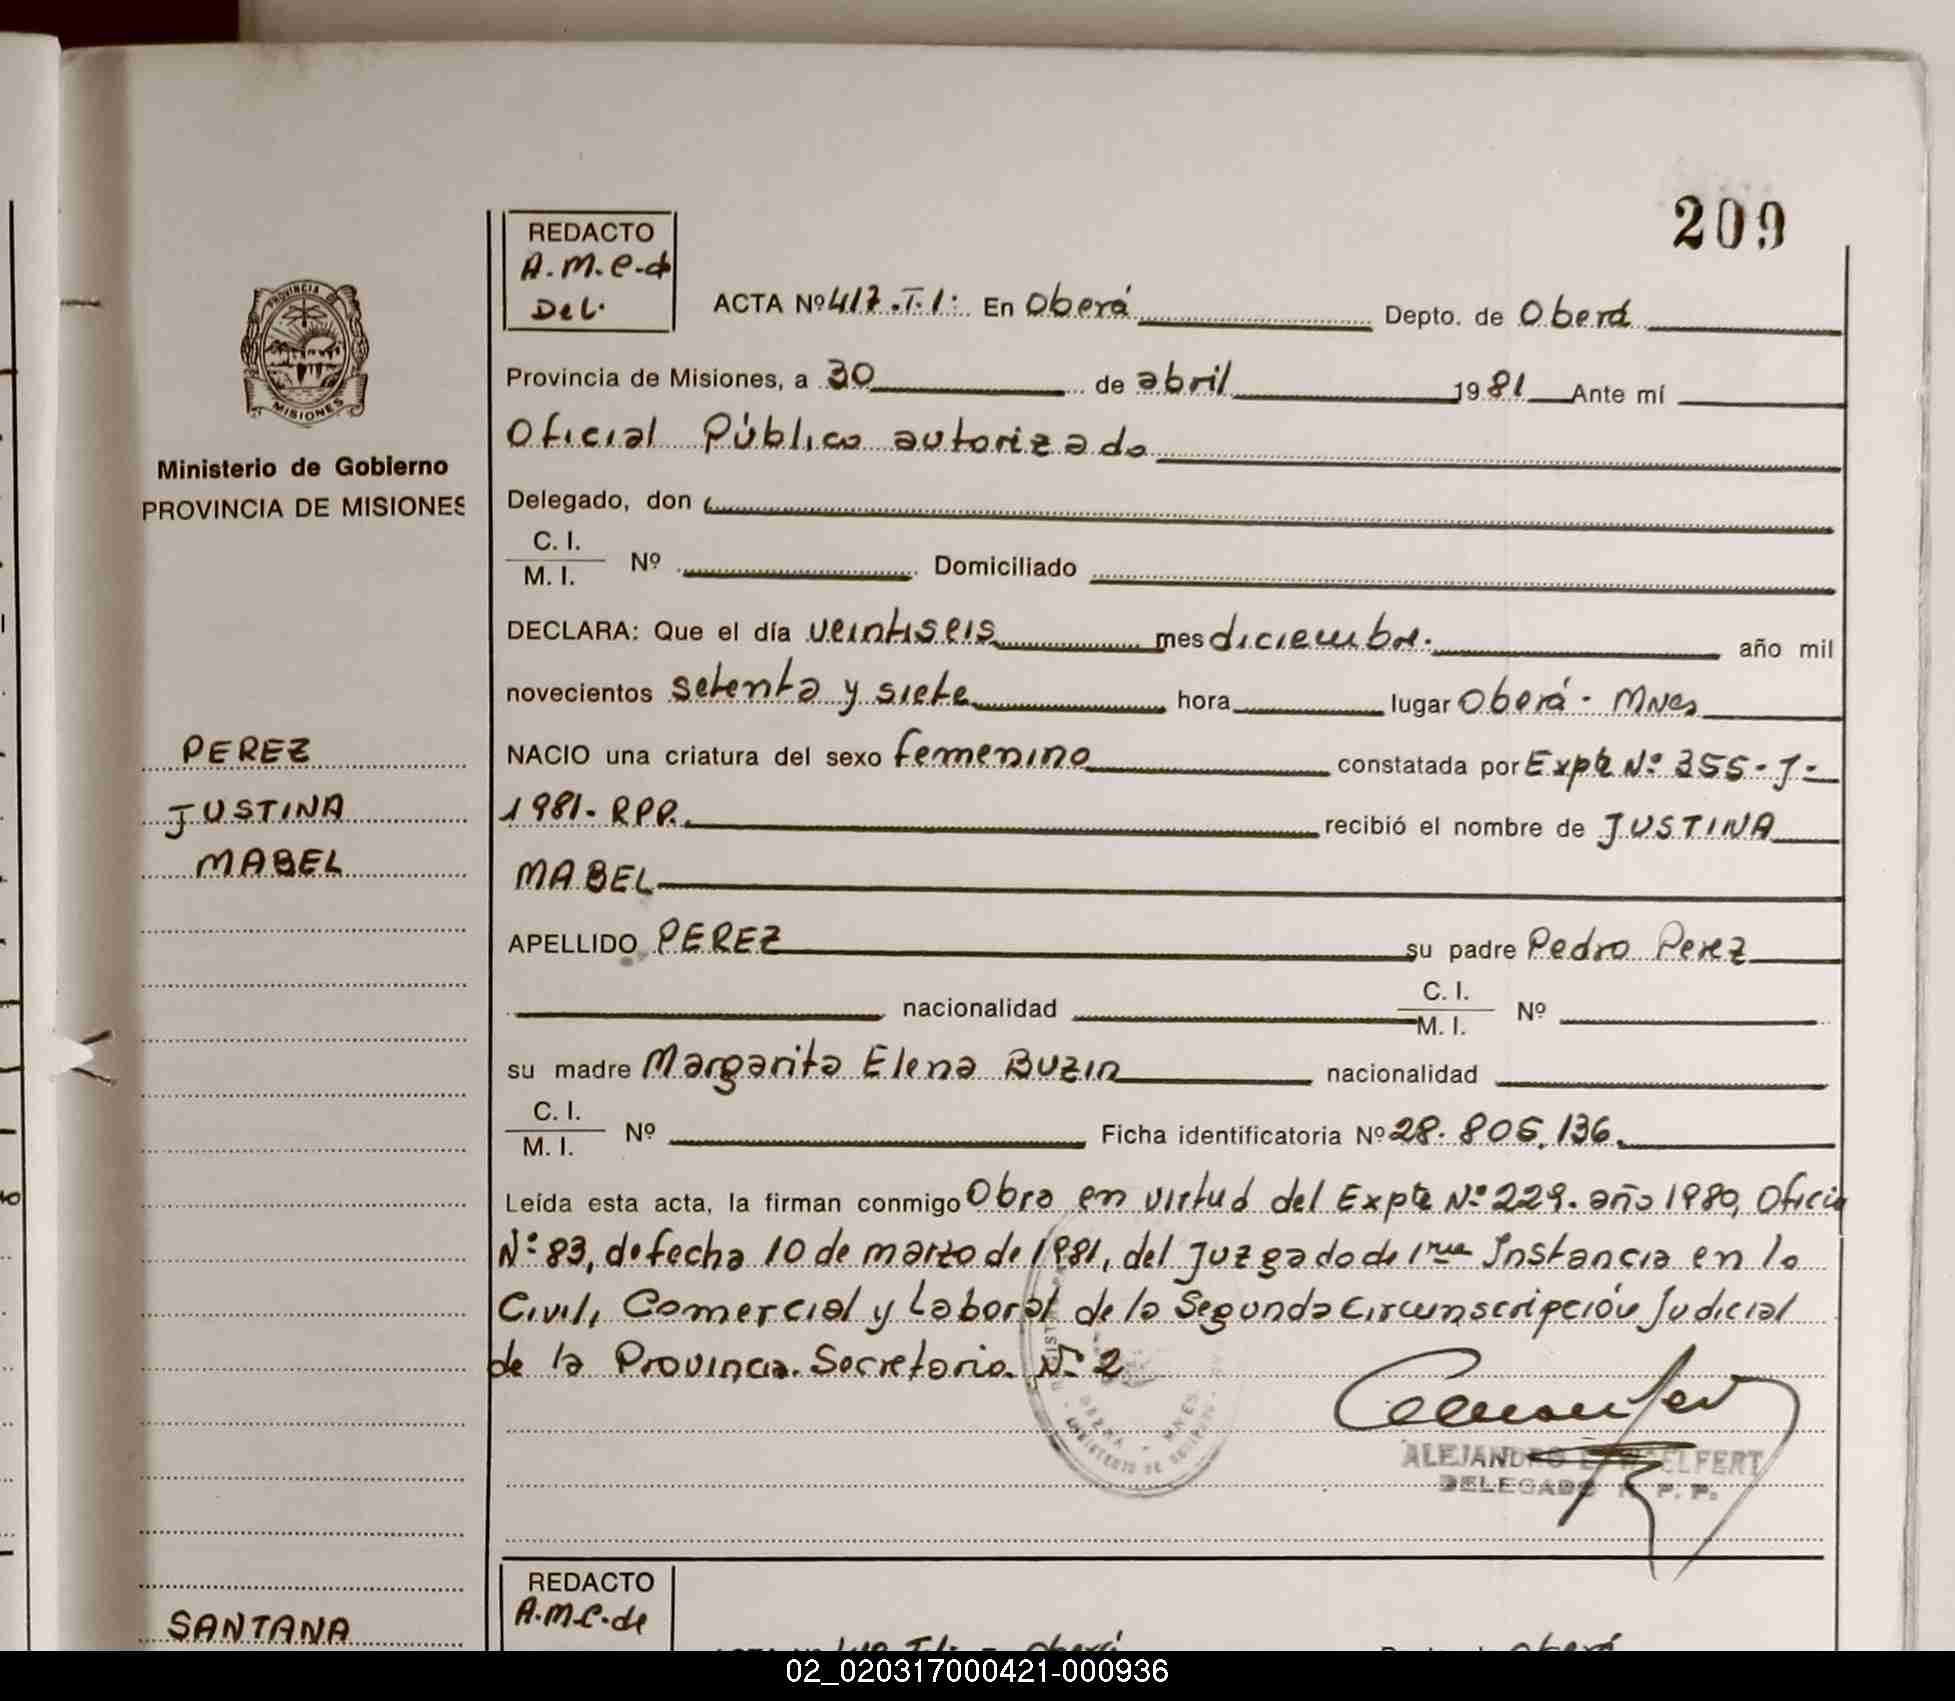 209
REDACTO
A.M.C.d
Del.
ACTA Nº 417.T.1: En Oberá Depto. de Oberá
PROVINCIA DE
MISIONES
Provincia de Misiones, a 30 de abril 1981 Ante mí
Oficial Público autorizado
Ministerio de Gobierno
PROVINCIA DE MISIONES
Delegado, don
C. I.
M. I. Nº Domiciliado
DECLARA: Que el día veintiseis mes diciembre. año mil
novecientos setenta y siete hora lugar Oberá - Mnes
PEREZ
JUSTINA
MABEL
NACIO una criatura del sexo femenino constatada por Expte Nº 355-J-
1981- RPP. recibió el nombre de JUSTINA
MABEL
APELLIDO PEREZ su padre Pedro Perez
nacionalidad C. I.
M. I. Nº
su madre Margarita Elena BUZIN nacionalidad
C. I.
M. I. Nº Ficha identificatoria Nº 28.805.136.
Leída esta acta, la firman conmigo Obra en virtud del Expte Nº 229. año 1980, Oficio
Nº 83, de fecha 10 de marzo de 1981, del Juzgado de 1ra Instancia en lo
Civil, Comercial y Laboral de la Segunda Circunscripción Judicial
de la Provincia. Secretaria. Nº 2
ALEJANDRO WOELFERT
DELEGADO R. P. P.
REDACTO
A.M.C.de
SANTANA
02_020317000421-000936